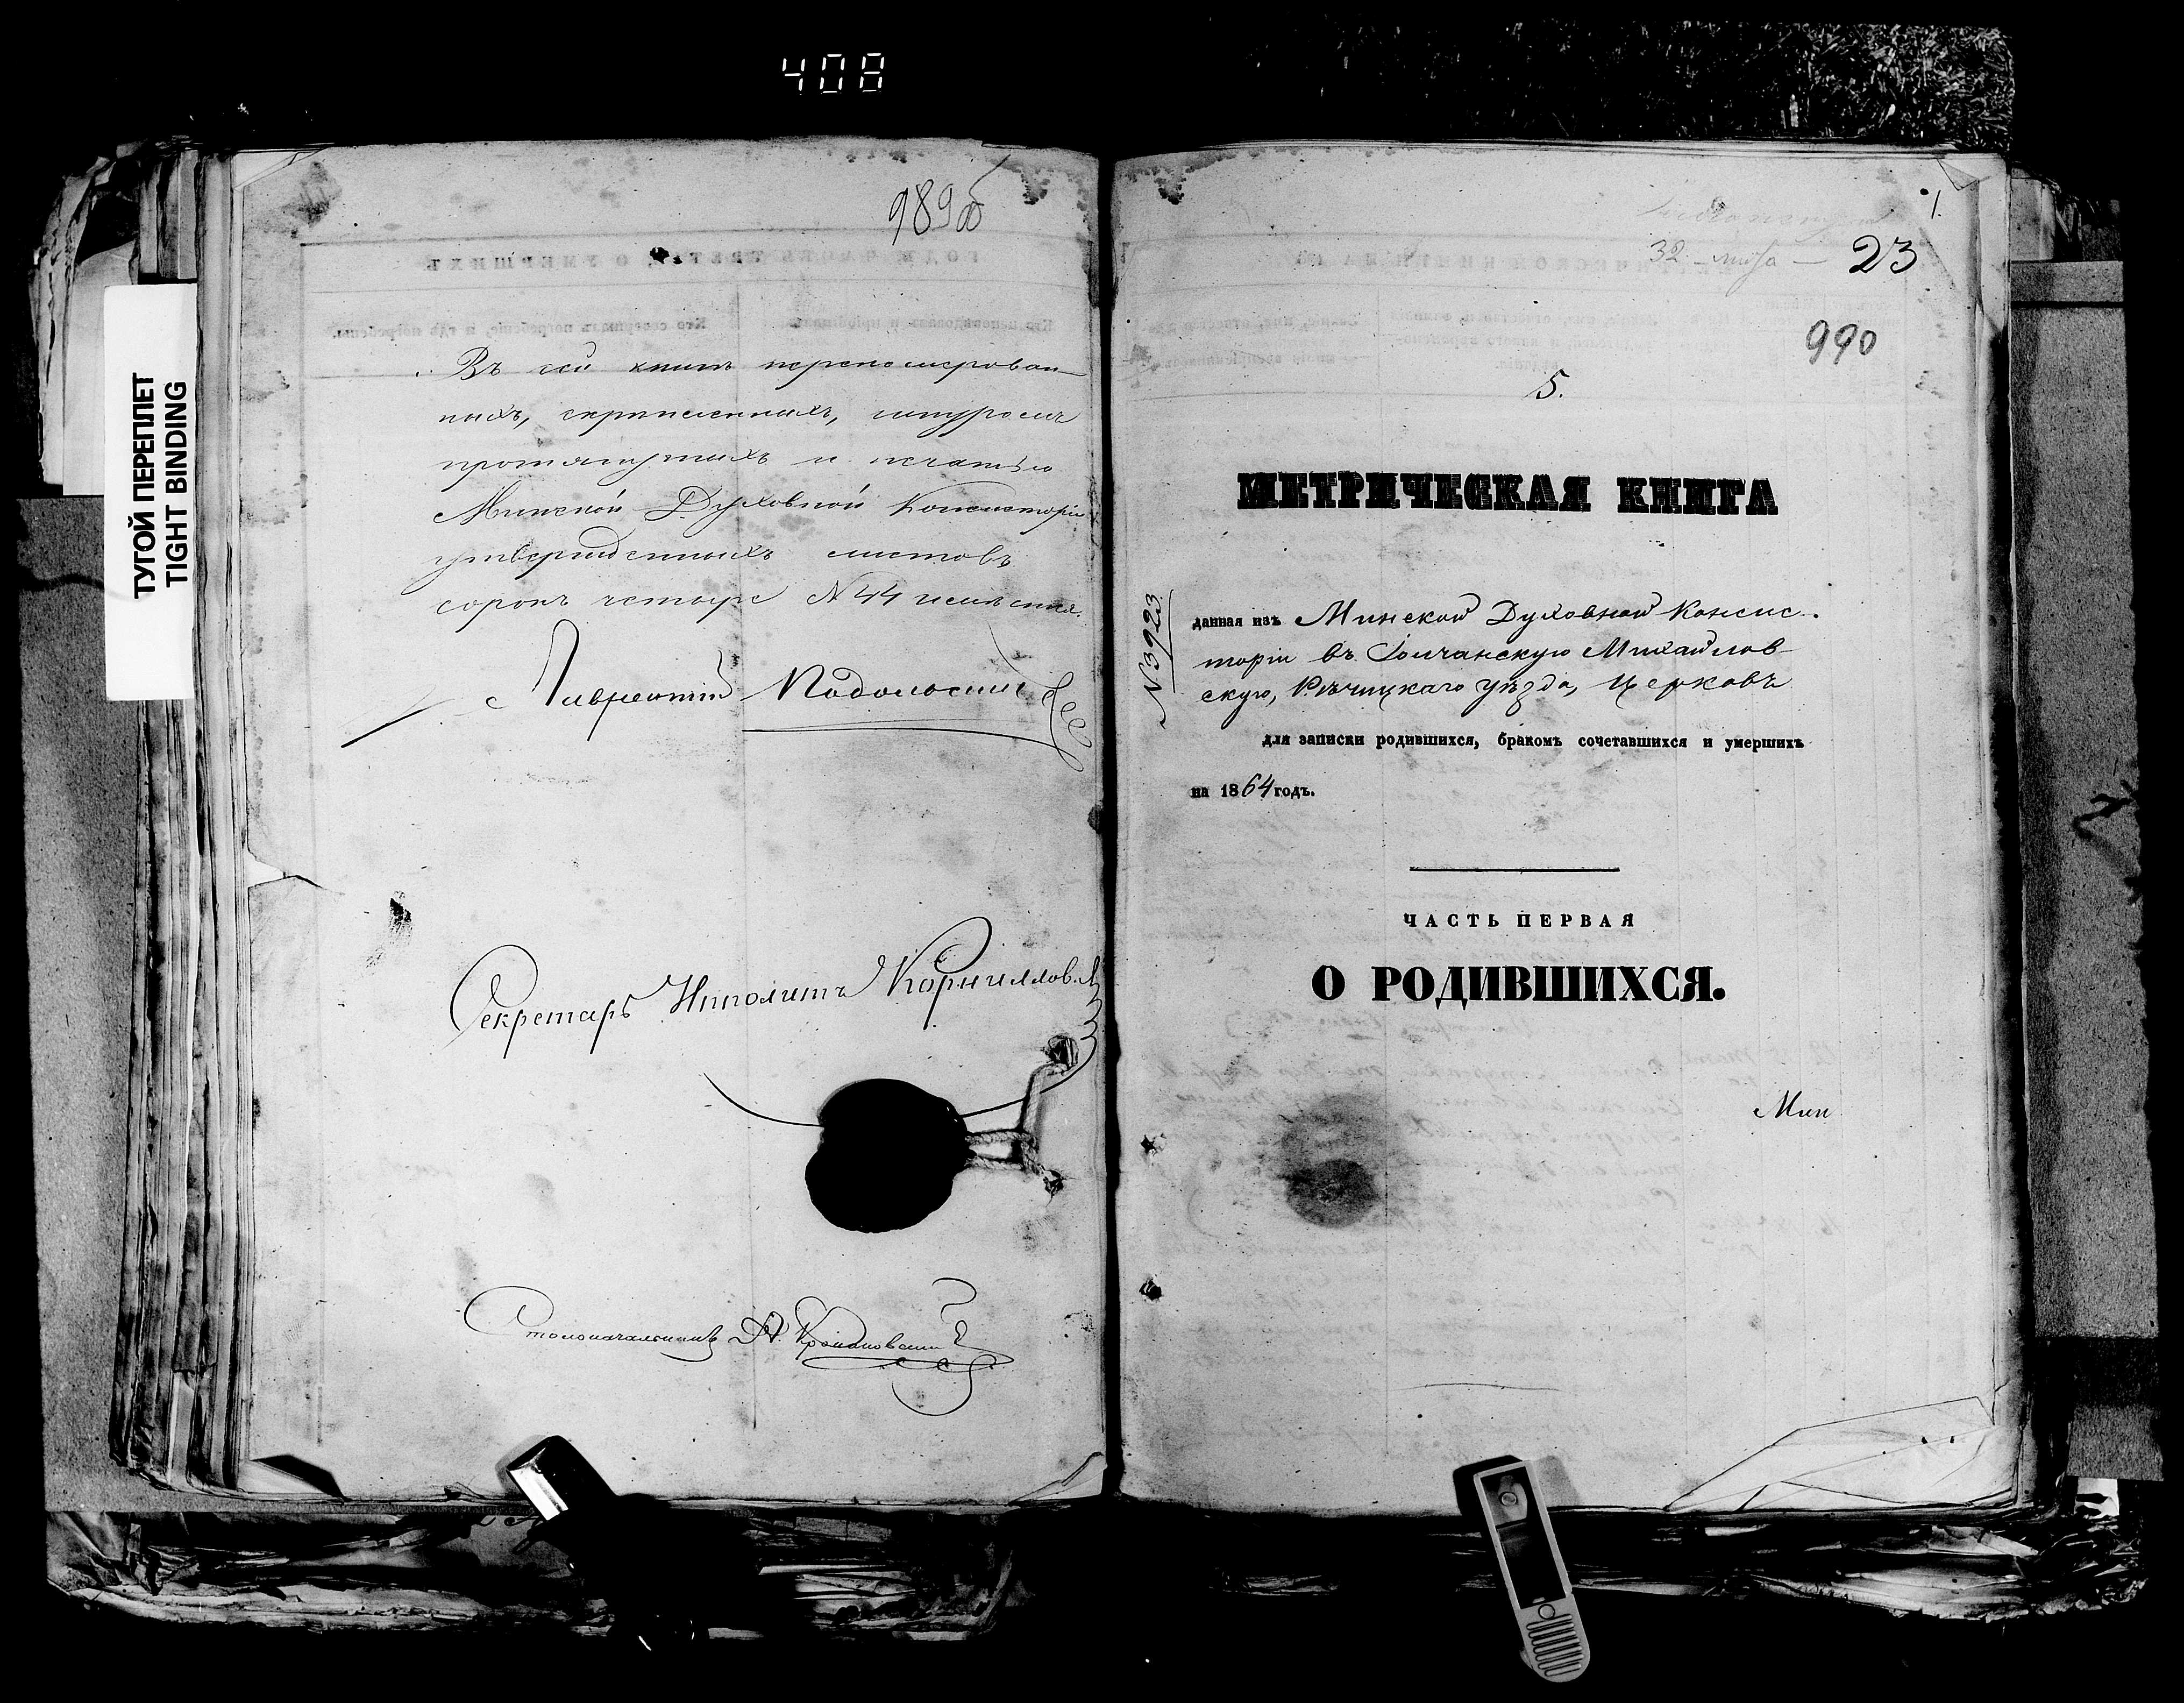 408
ТУГОЙ ПЕРЕПЛЕТ
TIGHT BINDING
989об
Въ сей книгѣ перепомерован-
ныхъ, скрѣпленныхъ, шнуромъ
протянутыхъ и печатью
Минской Духовной Консисторіи
утвержденныхъ листовъ
сорокъ четыре N 44
Подольскій
Секретарь Ипполитъ Корниллов
Столоначальникъ
1.
32 - 23
990
5.
МЕТРИЧЕСКАЯ КНИГА
N 3923
данная изъ Минской Духовной Консис-
торіи въ Михайлов-
скую, Рѣчицкаго уѣзда, церковь
для записки родившихся, бракомъ сочетавшихся и умершихъ
на 1864 годъ.
ЧАСТЬ ПЕРВАЯ
О РОДИВШИХСЯ.
Мин